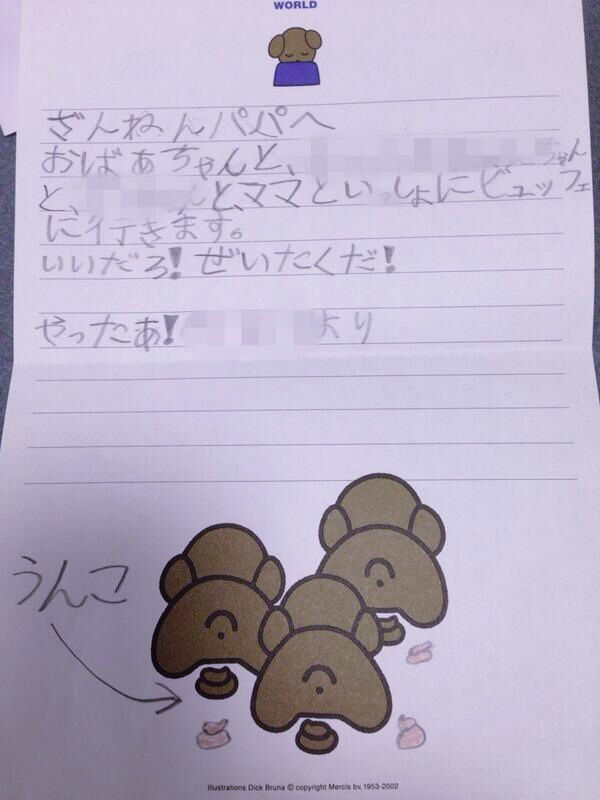 WORLD
ざんねんパパへ
おばあちゃんと、ちゃん
と、んと、ママといっしょにビュッフェ
に行きます。
いいだろ!ぜいたくだ!
やったあ!より
うんこ
Illustrations Dick Bruna © copyright Mercis bv, 1953-2002